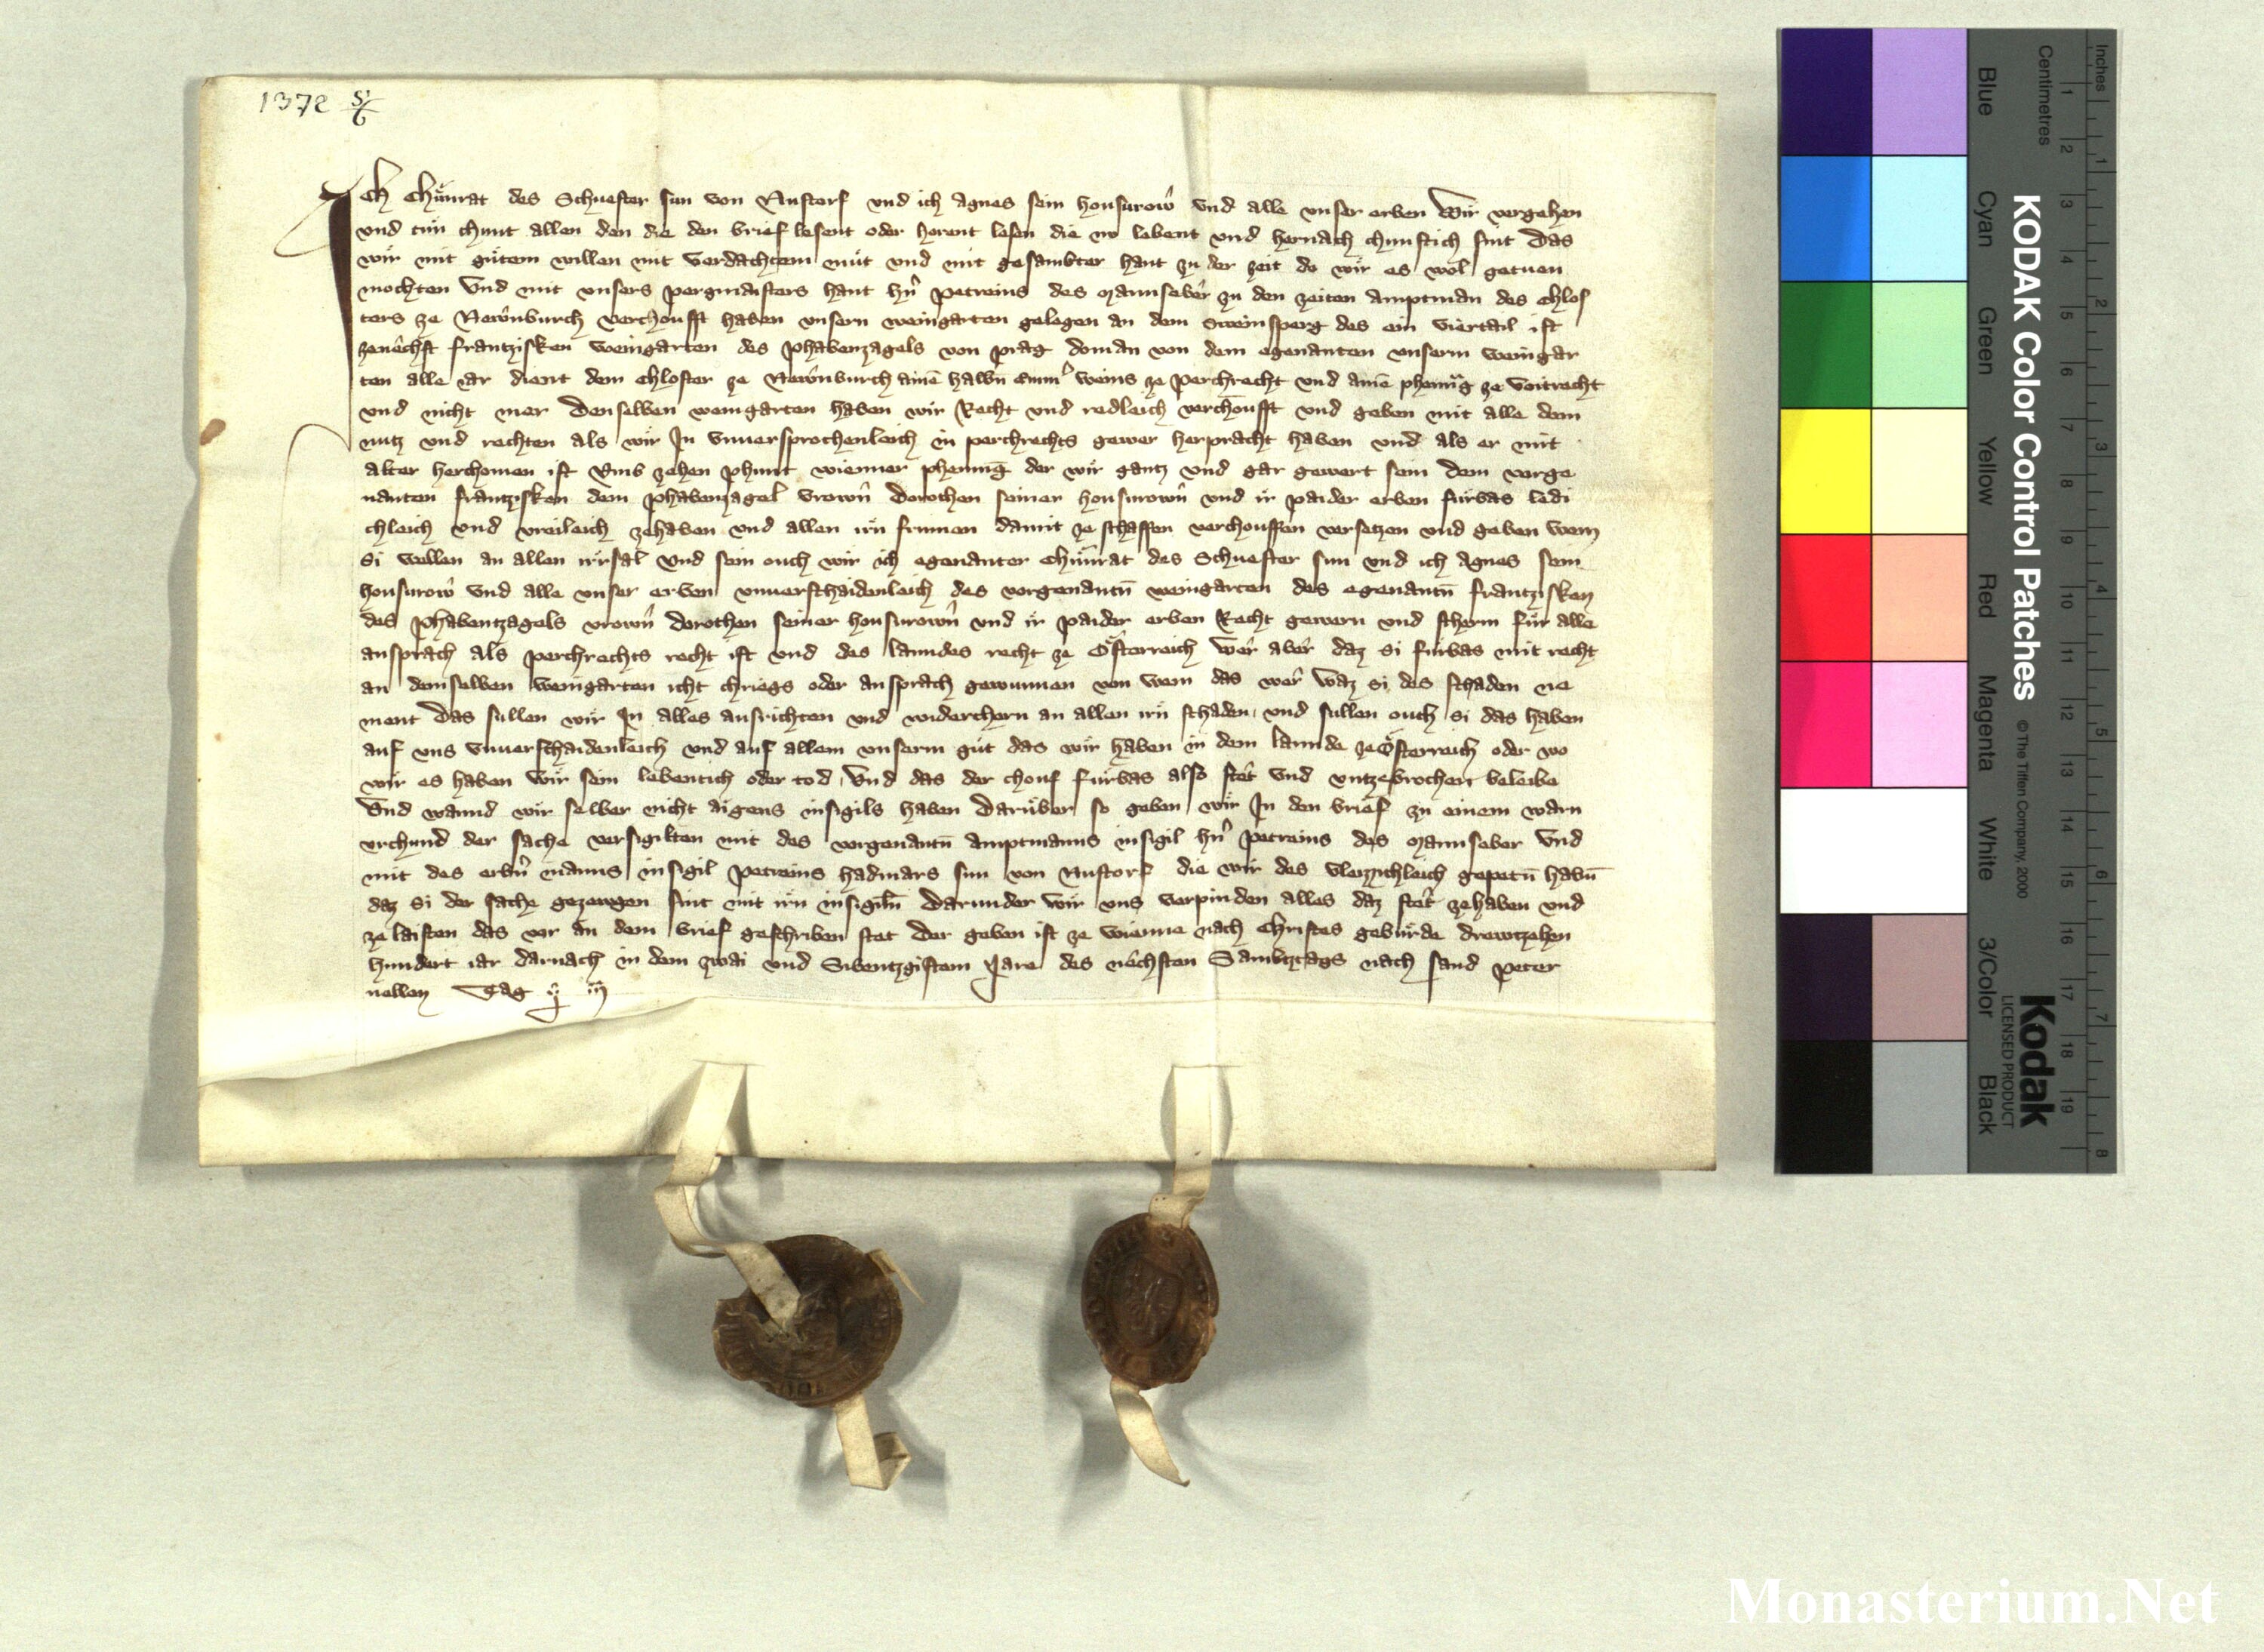 1372 5/6
Ich Chuͤnrat des Schuester sun von Nustorf vnd ich Agnes sein housurow vnd alle vnser erben Wir vergehen
vnd tuͤn chunt allen den die den brief lesent oder horent lesen die nv lebent vnd hernach chunftich sint Das
wir mit guͤtem willen mit verdachtem muͤt vnd mit gesambter hant zu der zeit do wir es wol getuen
mochten Vnd mit vnsers pergmaisters hant hn̂ Petreins des Mannseber zu den zeiten Amptman des Chlos
ters ze Newnburch verchoufft haben vnsern weingarten gelegen an dem Sweinsperg des ein viertail ist
zenêchst Frantzisken weingarten des Phabenzagels von Prag doman von dem egenanten vnserm weingar
ten alle iar dient dem Chloster ze Newnburch ainē halbn̄ Emmˀ weins ze perchrecht vnd ainē phennīg ze voitrecht
vnd nicht mer Denselben weingarten haben wir Recht vnd redleich verchoufft vnd geben mit alle dem
nutz vnd rechten als wir In vnuersprochenleich in perchrechts gewer herpracht haben vnd als er mit
alter herchomen ist Vmb zehen phunt wienner phennīg der wir gantz vnd gar gewert sein dem vorge
nanten Frantzisken dem Phabenzagel vrown̂ Dorothen seiner housurown̂ vnd ir paider erben furbas ledi
chleich vnd vreileich zehaben vnd allen irn̄ frumen damit ze schaffen verchouffen versetzen vnd geben wem
si wellen an allen irrsal Vnd sein ouch wir ich egenanter Chuͤnrat des Schuester sun vnd ich Agnes sein
housurow vnd alle vnser erben vnuerschaidenleich des vorgenantn̄ weingarten des egenantn̄ Frantzisken
des Phabentzagels vrown̂ Dorothen seiner housurown̂ vnd ir paider erben Recht gewern vnd scherm fuͤr alle
ansprach als perchrechts recht ist vnd des lanndes recht ze Oͤsterreich Wêr aber daz si furbas mit recht
an demselben weingarten icht chriegs oder ansprach gewunnen von wem das wêr waz si des schaden ne
ment Das sullen wir In alles ausrichten vnd widerchern an allen irn̄ schaden vnd sullen ouch si das haben
auf vns vnuerschaidenleich vnd auf allem vnserm guͤt das wir haben in dem lannde ze Oͤsterreich oder wo
wir es haben Wir sein lebentich oder tod Vnd das der chouf fuͤrbas also stêt vnd vntzebrochen beleibe
Vnd wannd wir selber nicht aigens insigils haben Daruͤber so geben wir In den brief zu einem warn
vrchund der sache versigilten mit des vorgenantn̄ Amptmanns insigil hn̂ Petreins des Mannseber Vnd
mit des erbn̂ manns insigil Petreins Hadmars sun von Nustorf die wir des vleizzichleich gepetn̄ habn̄
daz si der sache gezewgen sint mit irn̄ insigiln̄ Darunder wir vns verpinden alles daz stêt zehaben vnd
ze laisten das vor an dem brief geschriben stet Der geben ist ze Wienne nach Christes geburde Drewtzehen
hundert iar Darnach in dem zwai vnd Sibentzgistem Jare des nêchsten Sambtztags nach Sand Peter
nellen Tag
KODAK Color Control Patches
© The Tiffen Company, 2000
Kodak
LICENSED PRODUCT
Inches
Centimetres
Blue Cyan Green Yellow Red Magenta White 3/Color Black
1 2 3 4 5 6 7 8 9 10 11 12 13 14 15 16 17 18 19
1 2 3 4 5 6 7 8
Monasterium.Net